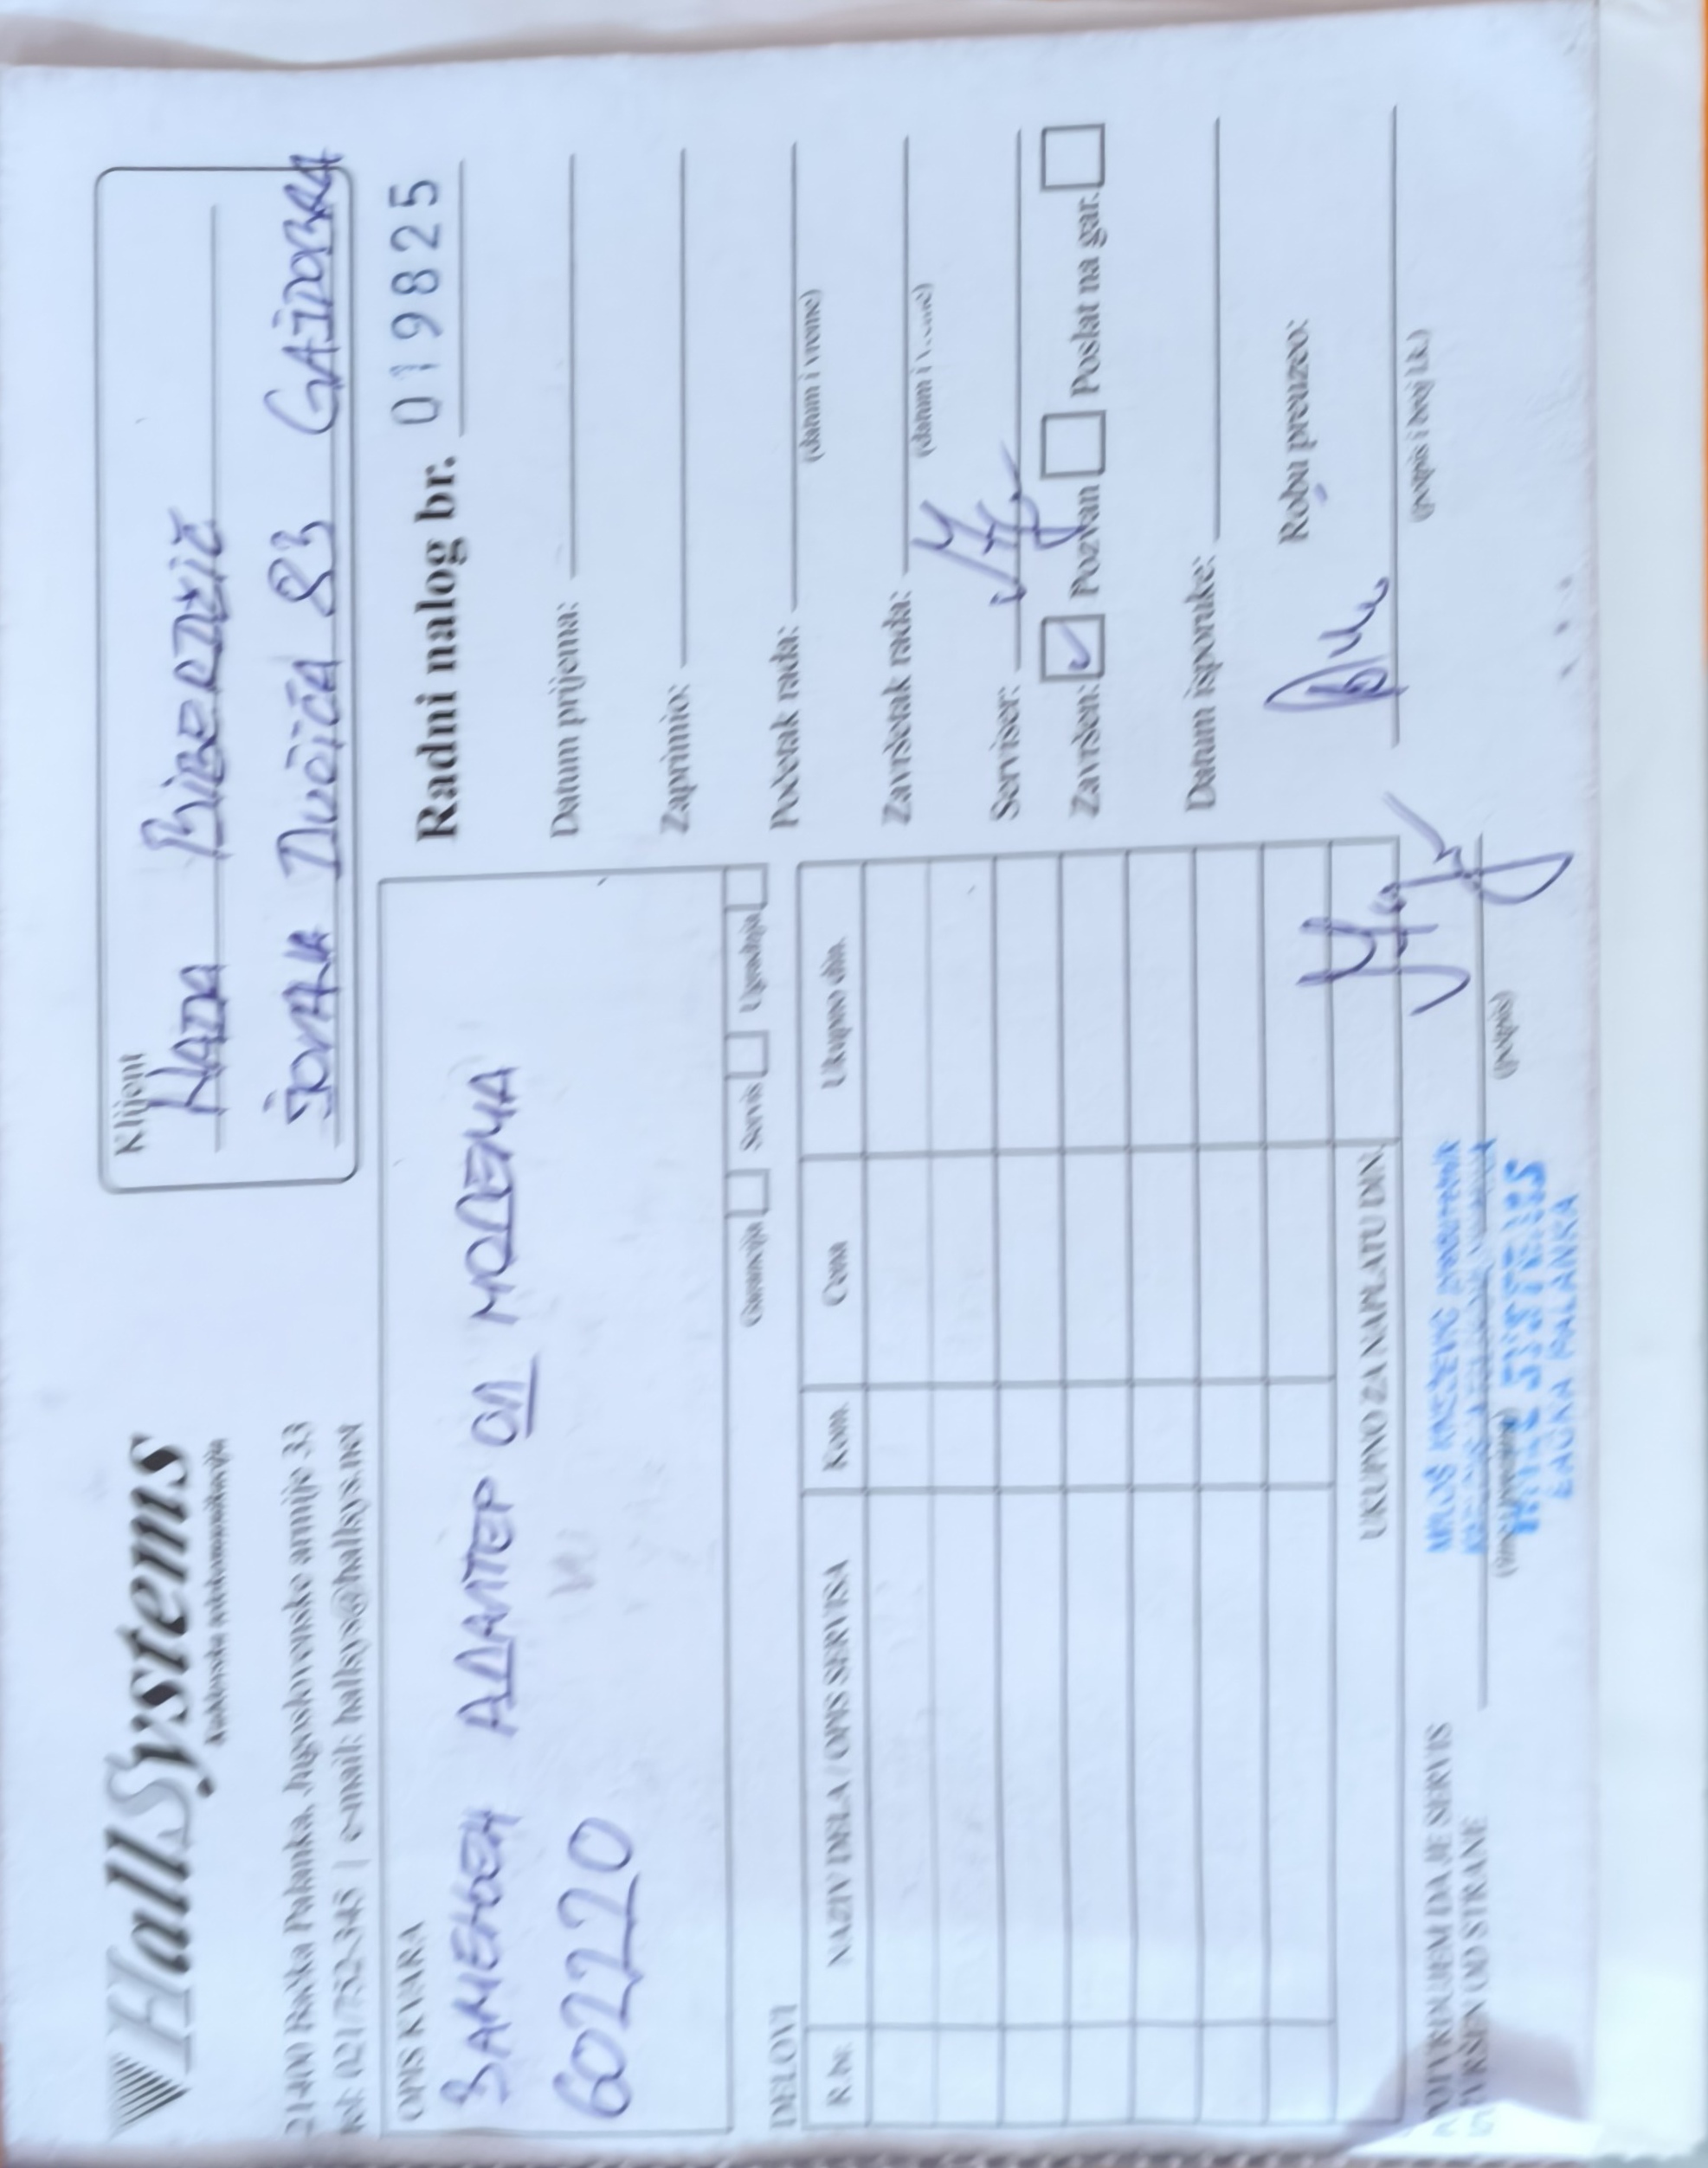 HallSystems
Kablovske telekomunikacije
21400 Bačka Palanka, Jugoslovenske armije 33
tel: 021/752-345 | e-mail: hallsys@hallsys.net
Klijent
НАДА
ЈОВАНА ДУЧИЋА 83 ГАЈДОБРА
Radni nalog br. 019825
OPIS KVARA
ЗАМЕЊЕН АДАПТЕР ОД МОДЕМА
602220
Garancija Servis Ugradnja
Datum prijema:
Zaprimio:
Početak rada:
(datum i vreme)
Završetak rada:
(datum i vreme)
Serviser:
Završen: ✓ Pozvan Poslat na gar.
Datum isporuke:
Robu preuzeo:
(potpis i broj l.k.)
DELOVI
R.br. NAZIV DELA / OPIS SERVISA Kom. Cena Ukupno din.
UKUPNO ZA NAPLATU DIN.
POTVRĐUJEM DA JE SERVIS
IZVRŠEN OD STRANE
MILOŠ KNEŽEVIĆ
BAČKA PALANKA
(potpis)